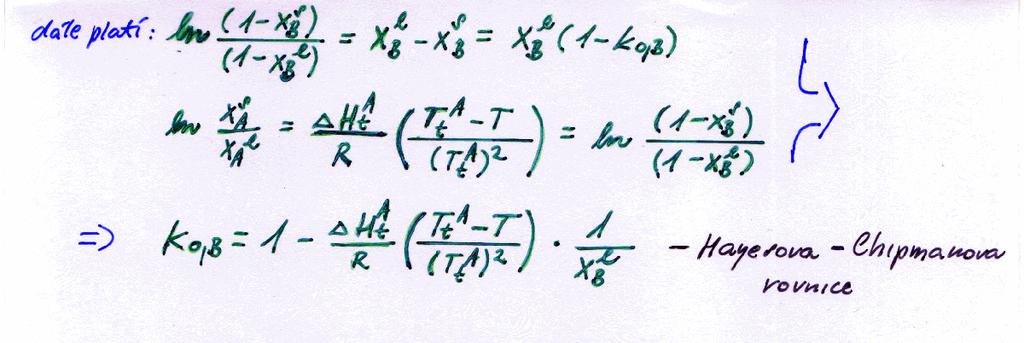 dále platí: ln (1-x_B^s)/(1-x_B^l) = x_B^l - x_B^s = x_B^l (1-k_{0,B})
ln x_A^s/x_A^l = ΔH_t^A/R ((T_t^A - T)/(T_t^A)^2) = ln (1-x_B^s)/(1-x_B^l)
=> k_{0,B} = 1 - ΔH_t^A/R ((T_t^A - T)/(T_t^A)^2) · 1/x_B^l - Hayesova - Chipmanova
rovnice